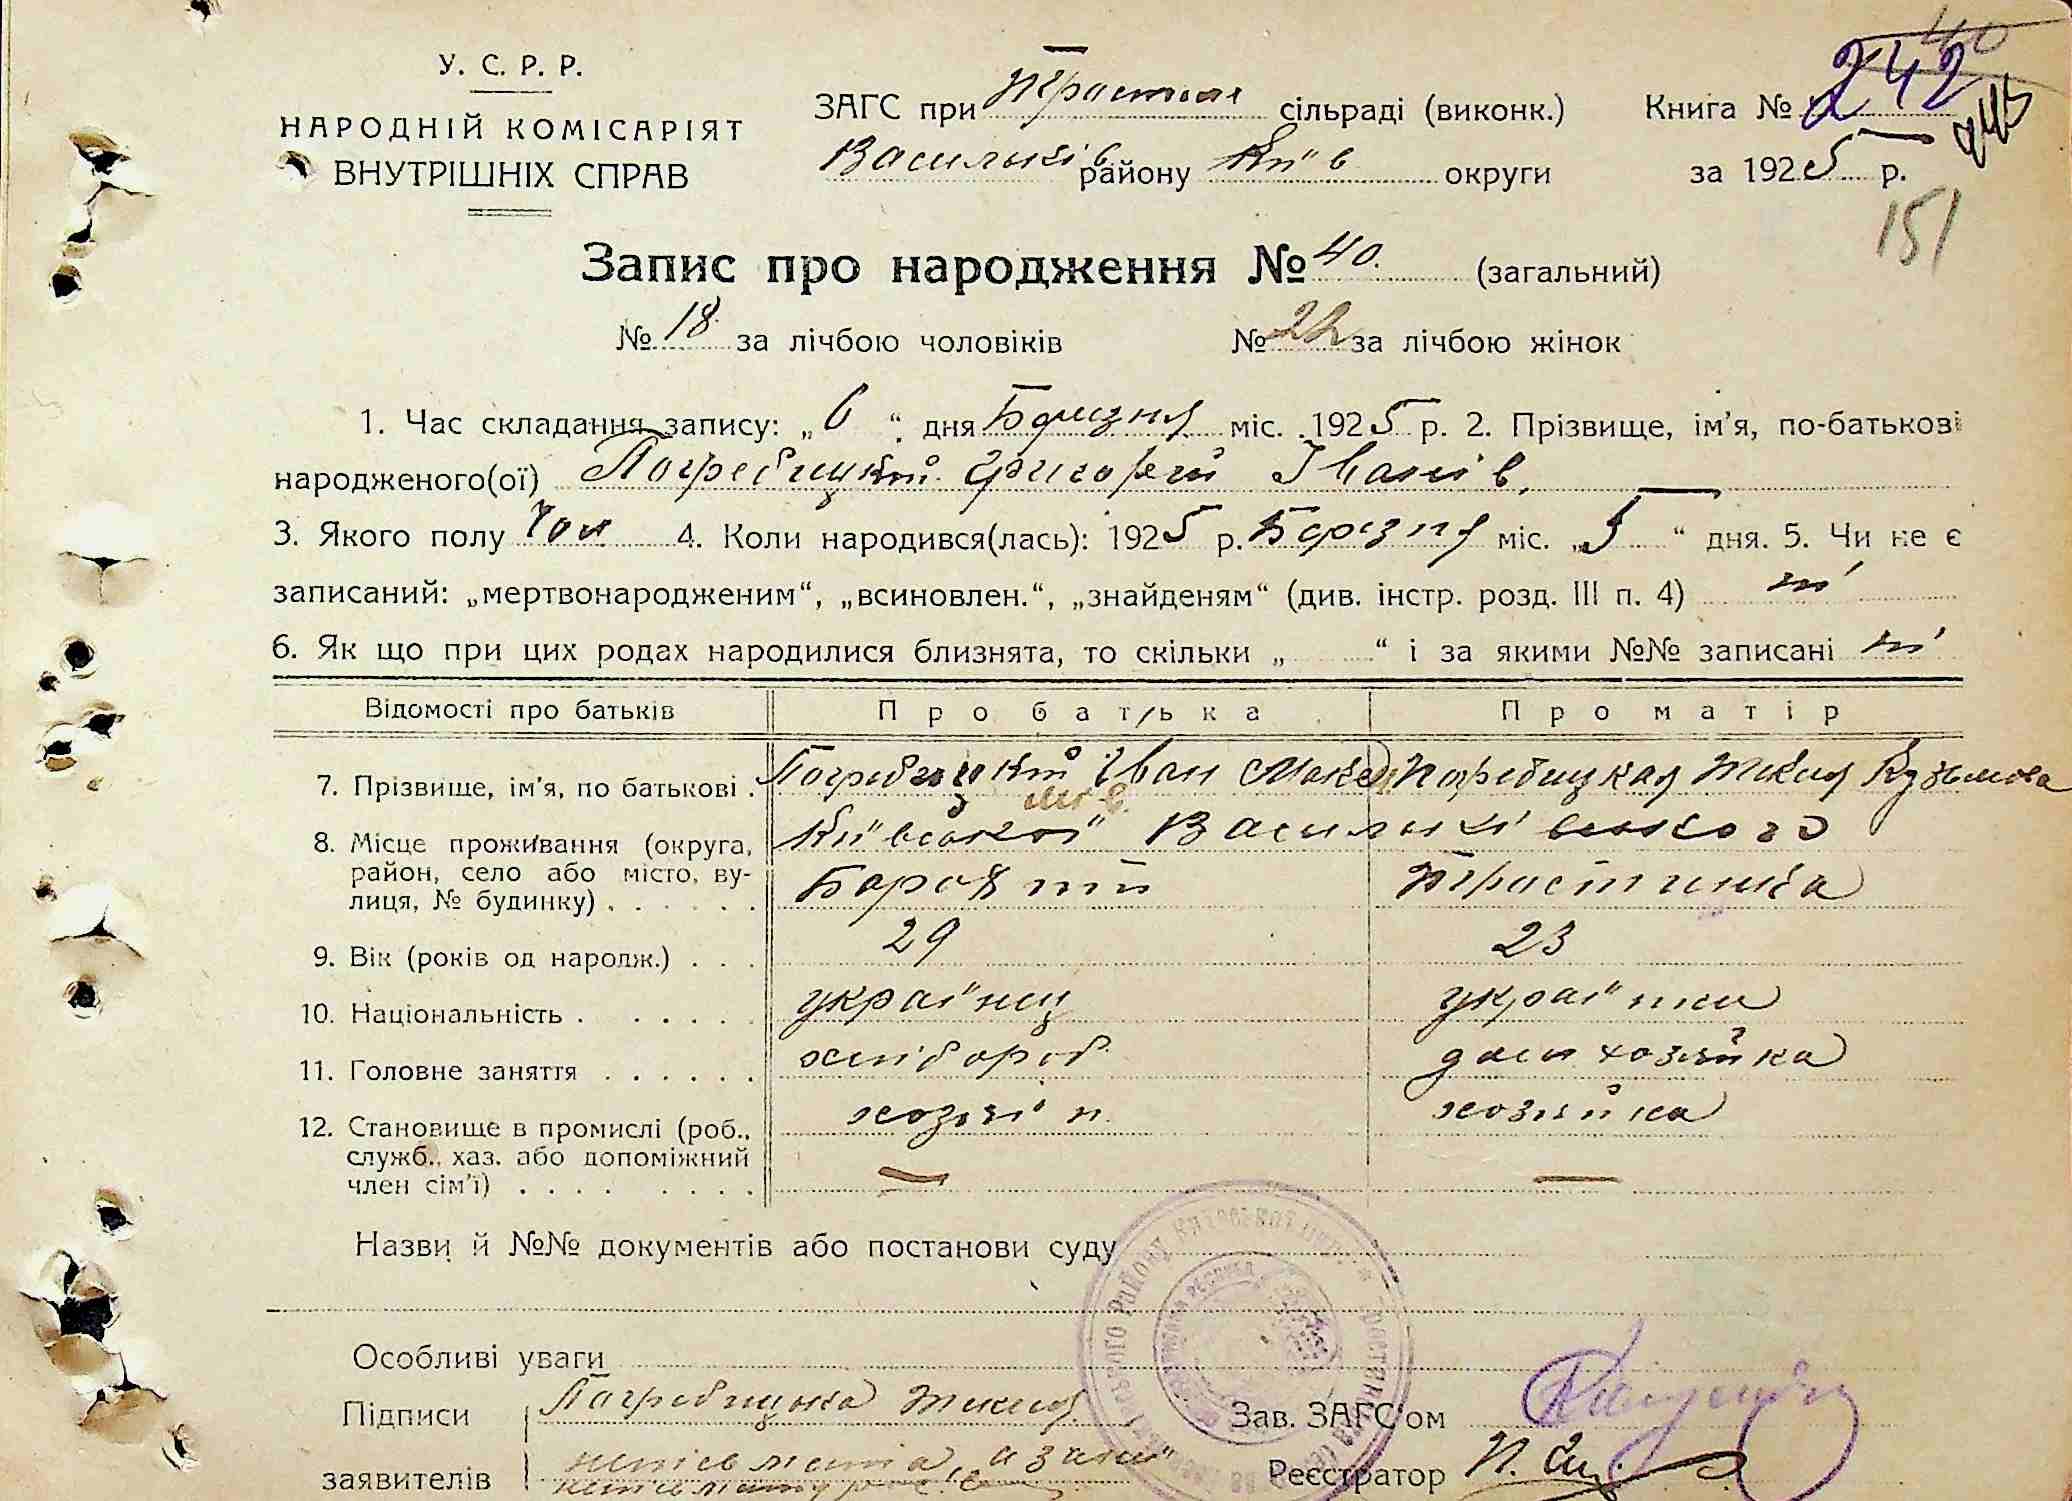 У. С. Р. Р.
НАРОДНІЙ КОМІСАРІЯТ
ВНУТРІШНІХ СПРАВ
ЗАГС при сільраді (виконк.)
Васильків району Київ округи
Книга № 242
за 1925 р.
151
Запис про народження № 40. (загальний)
№ 18 за лічбою чоловіків № 22 за лічбою жінок
1. Час складання запису: „6“ дня Березня міс. 1925 р. 2. Прізвище, ім'я, по-батькові
народженого(ої) Погребицкий Григорій Іванів,
3. Якого полу чол 4. Коли народився(лась): 1925 р. Березня міс. „5“ дня. 5. Чи не є
записаний: „мертвонародженим“, „всиновлен.“, „знайденям“ (див. інстр. розд. III п. 4) ні
6. Як що при цих родах народилися близнята, то скільки „ “ і за якими №№ записані ні
Відомості про батьків Про батька Про матір
7. Прізвище, ім'я, по батькові . Погребицкий Іван Погребицкая Кузьмова
8. Місце проживання (округа, Київської Васильківського
район, село або місто, ву-
лиця, № будинку) . . . . . . Трастинка
9. Вік (років од народж.) . . . 29 23
10. Національність . . . . . . українец українка
11. Головне заняття . . . . . . хлібороб дом хозяйка
12. Становище в промислі (роб., хозяін хозяйка
служб., хаз. або допоміжний
член сім'ї) . . . . . . . . — —
Назви й №№ документів або постанови суду
Особливі уваги
Підписи Погребицька
заявителів
Зав. ЗАГС'ом
Реєстратор